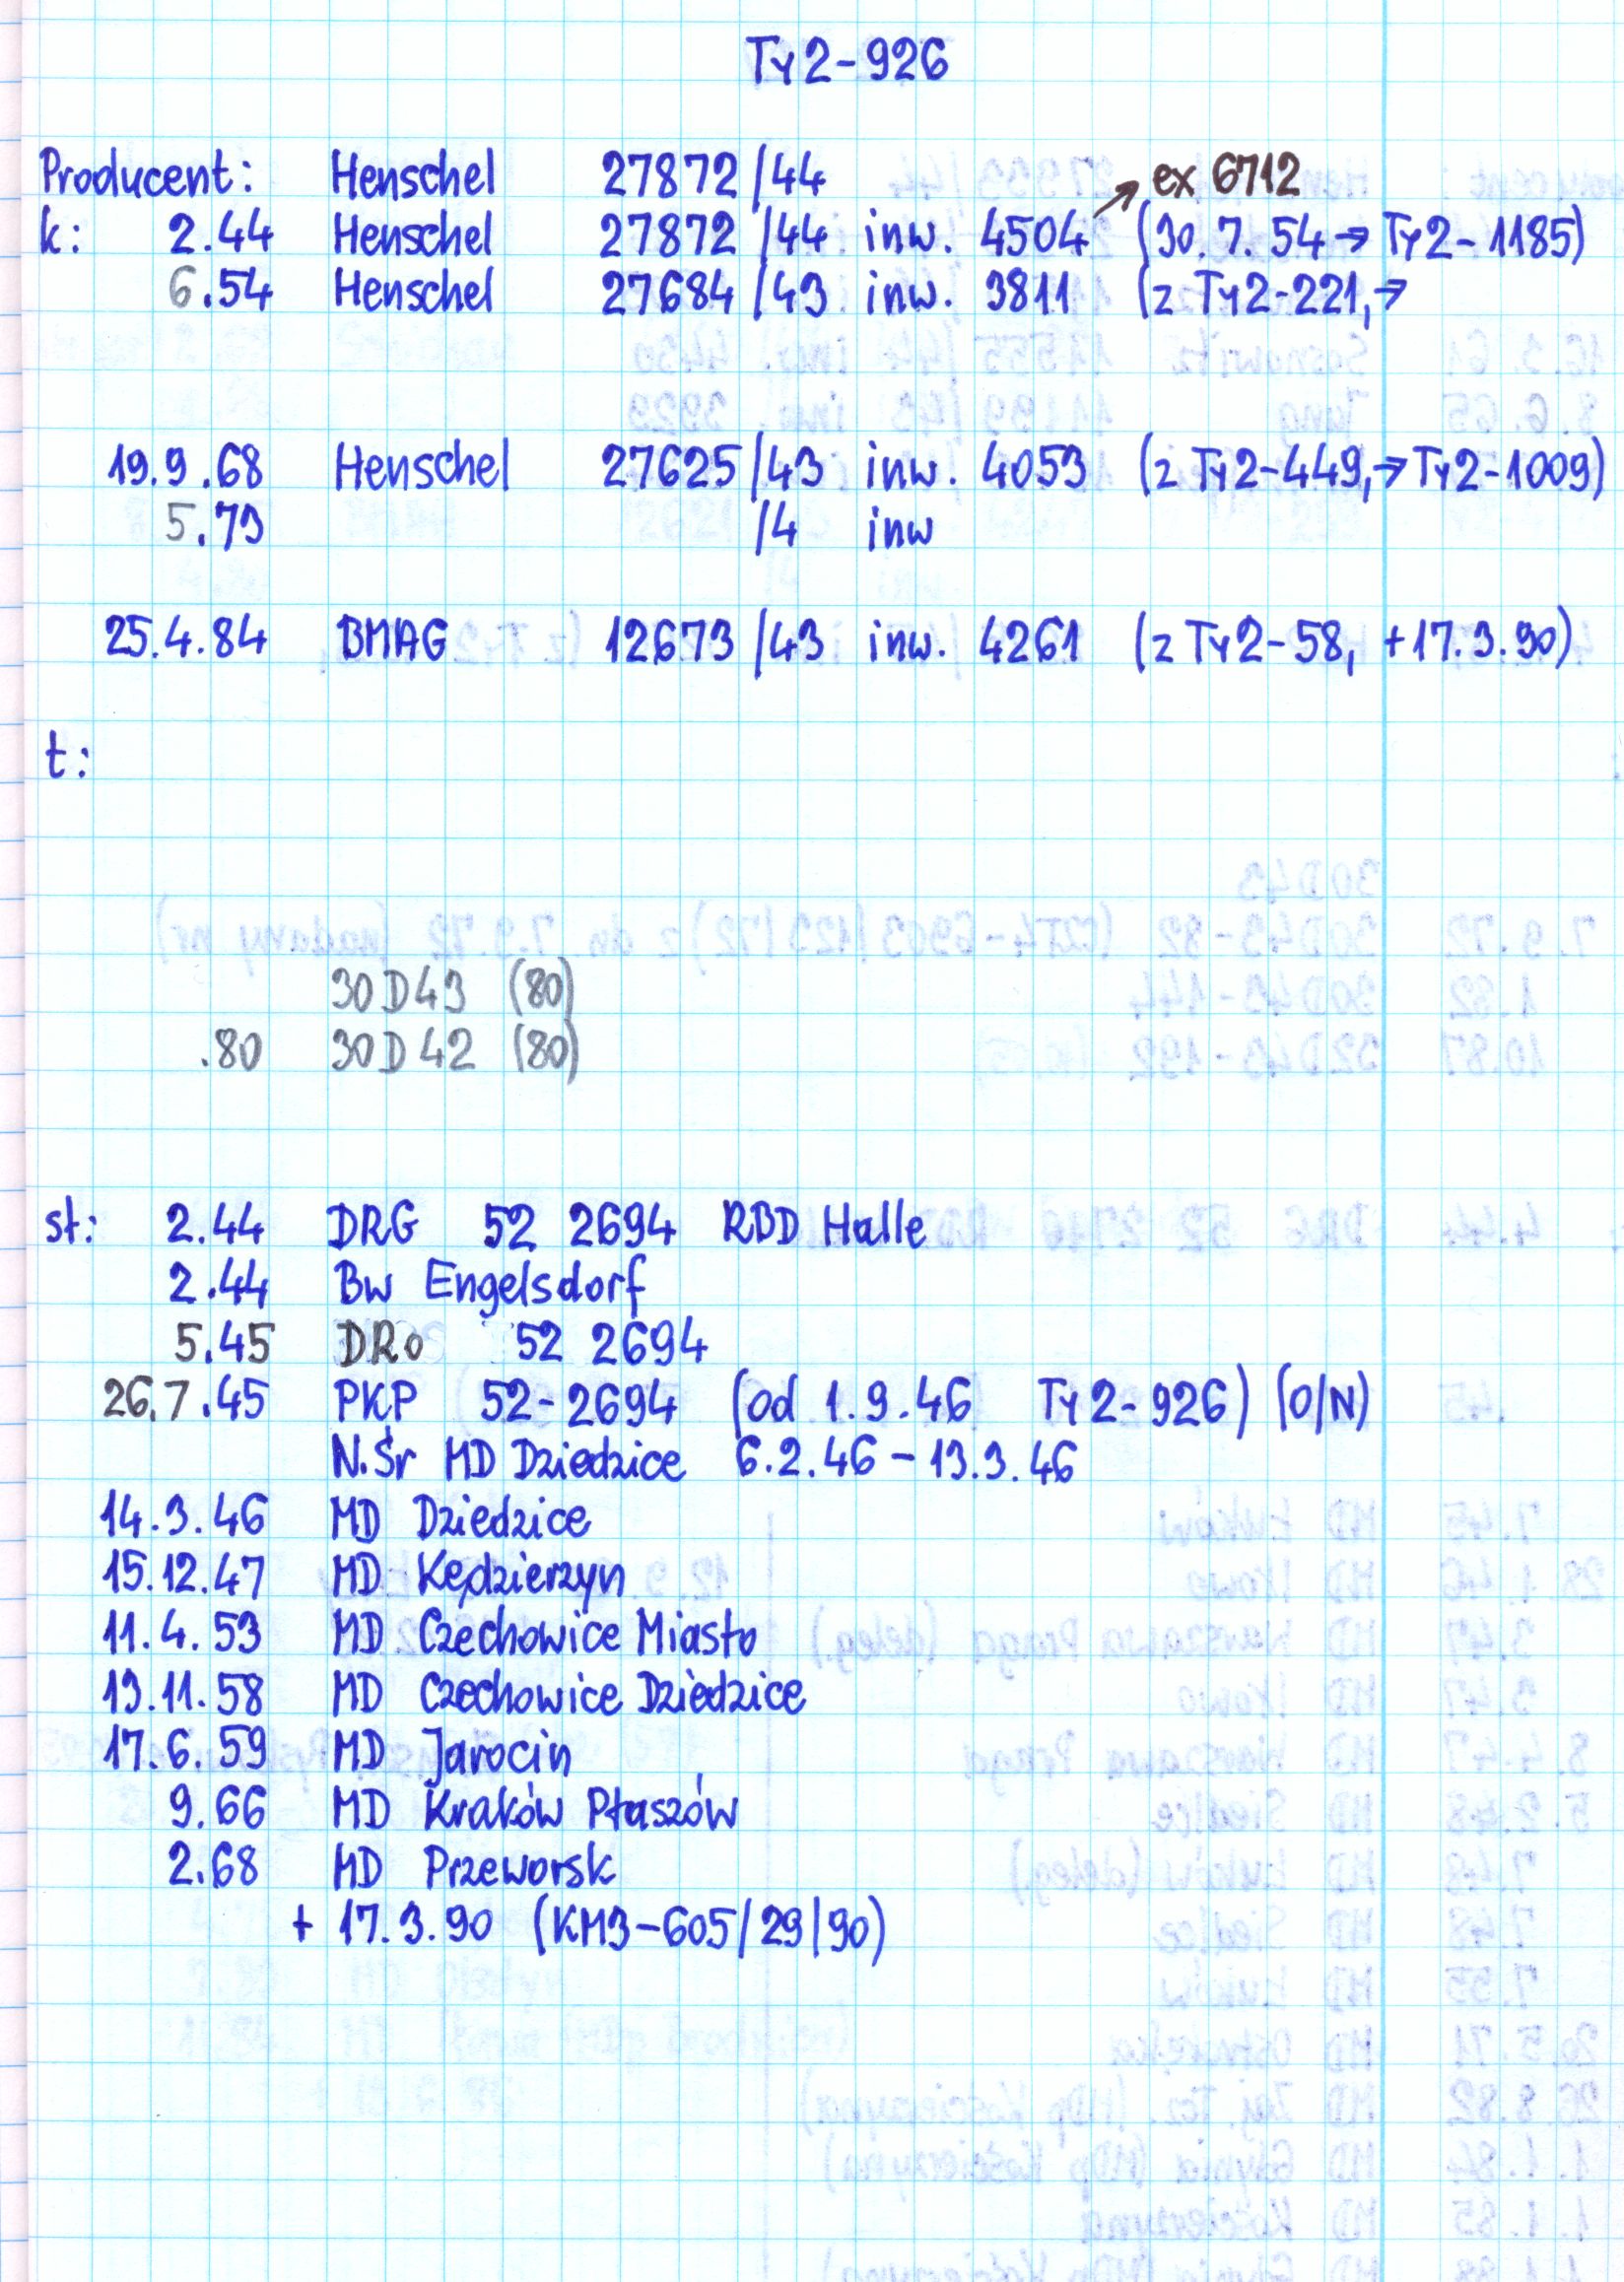 Ty2-926
Producent: Henschel 27872/44 ex 6712
k: 2.44 Henschel 27872/44 inw. 4504 (30.7.54 → Ty2-1185)
6.54 Henschel 27684/43 inw. 3811 (z Ty2-221, →
19.9.68 Henschel 27625/43 inw. 4053 (z Ty2-449, → Ty2-1009)
5.73 /4 inw
25.4.84 BMAG 12673/43 inw. 4261 (z Ty2-58, +17.3.90)
t:
30D43 (80)
.80 30D42 (80)
st: 2.44 DRG 52 2694 RBD Halle
2.44 Bw Engelsdorf
5.45 DRo 52 2694
26.7.45 PKP 52-2694 (od 1.9.46 Ty2-926) (O/N)
N.Śr MD Dziedzice 6.2.46 - 13.3.46
14.3.46 MD Dziedzice
15.12.47 MD Kędzierzyn
11.4.53 MD Czechowice Miasto
13.11.58 MD Czechowice Dziedzice
17.6.59 MD Jarocin
9.66 MD Kraków Płaszów
2.68 MD Przeworsk
+ 17.3.90 (KM3-605/29/90)